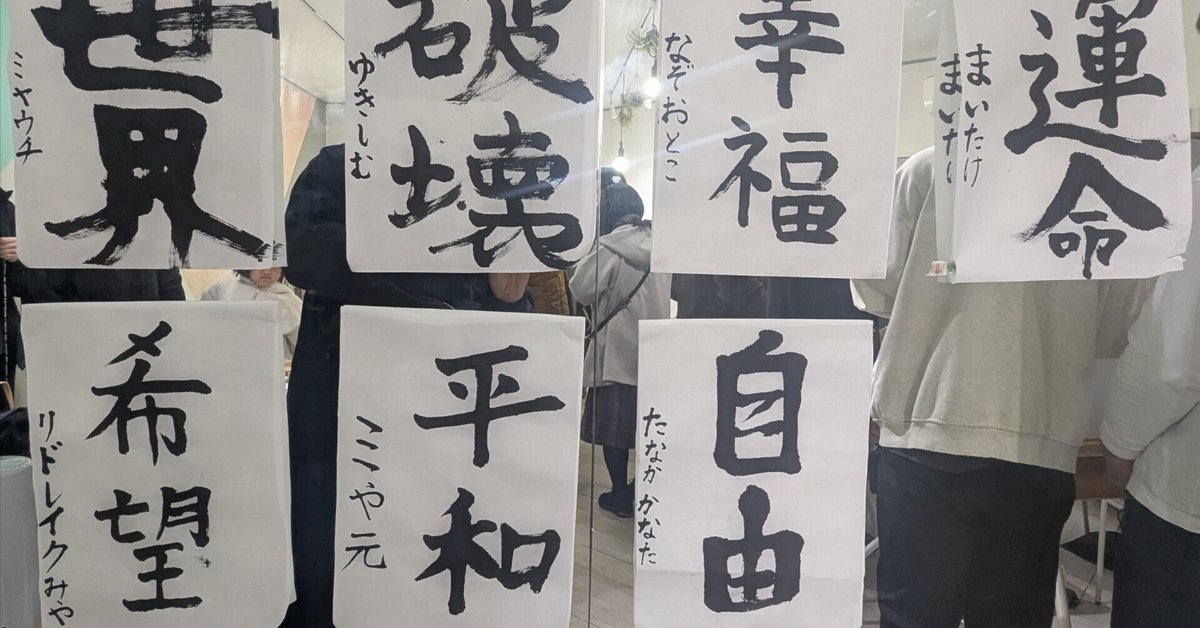 世界
ミヤウチ
破壊
ゆきしむ
幸福
なぞおとこ
運命
まいたけ
まいた
希望
リドレイクみや
平和
ミや元
自由
たなかかなた